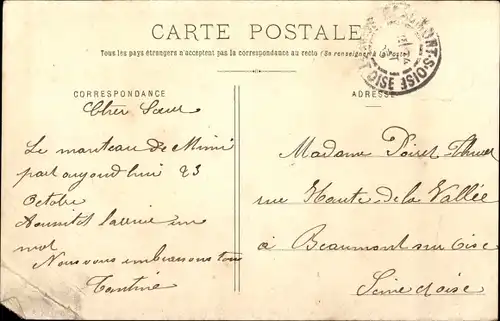 CARTE POSTALE
Tous les pays étrangers n'acceptent pas la correspondance au recto (Se renseigner à la Poste)
CORRESPONDANCE
ADRESSE
BEAUMONT-S-OISE
OISE
Cher Sœur
Le manteau de Mimi
part aujourd'hui 23
Octobre
un
mot
Nous vous embrassons tous
Tantine
Madame Poiret
rue Haute de la Vallée
à Beaumont sur Oise
Seine et oise